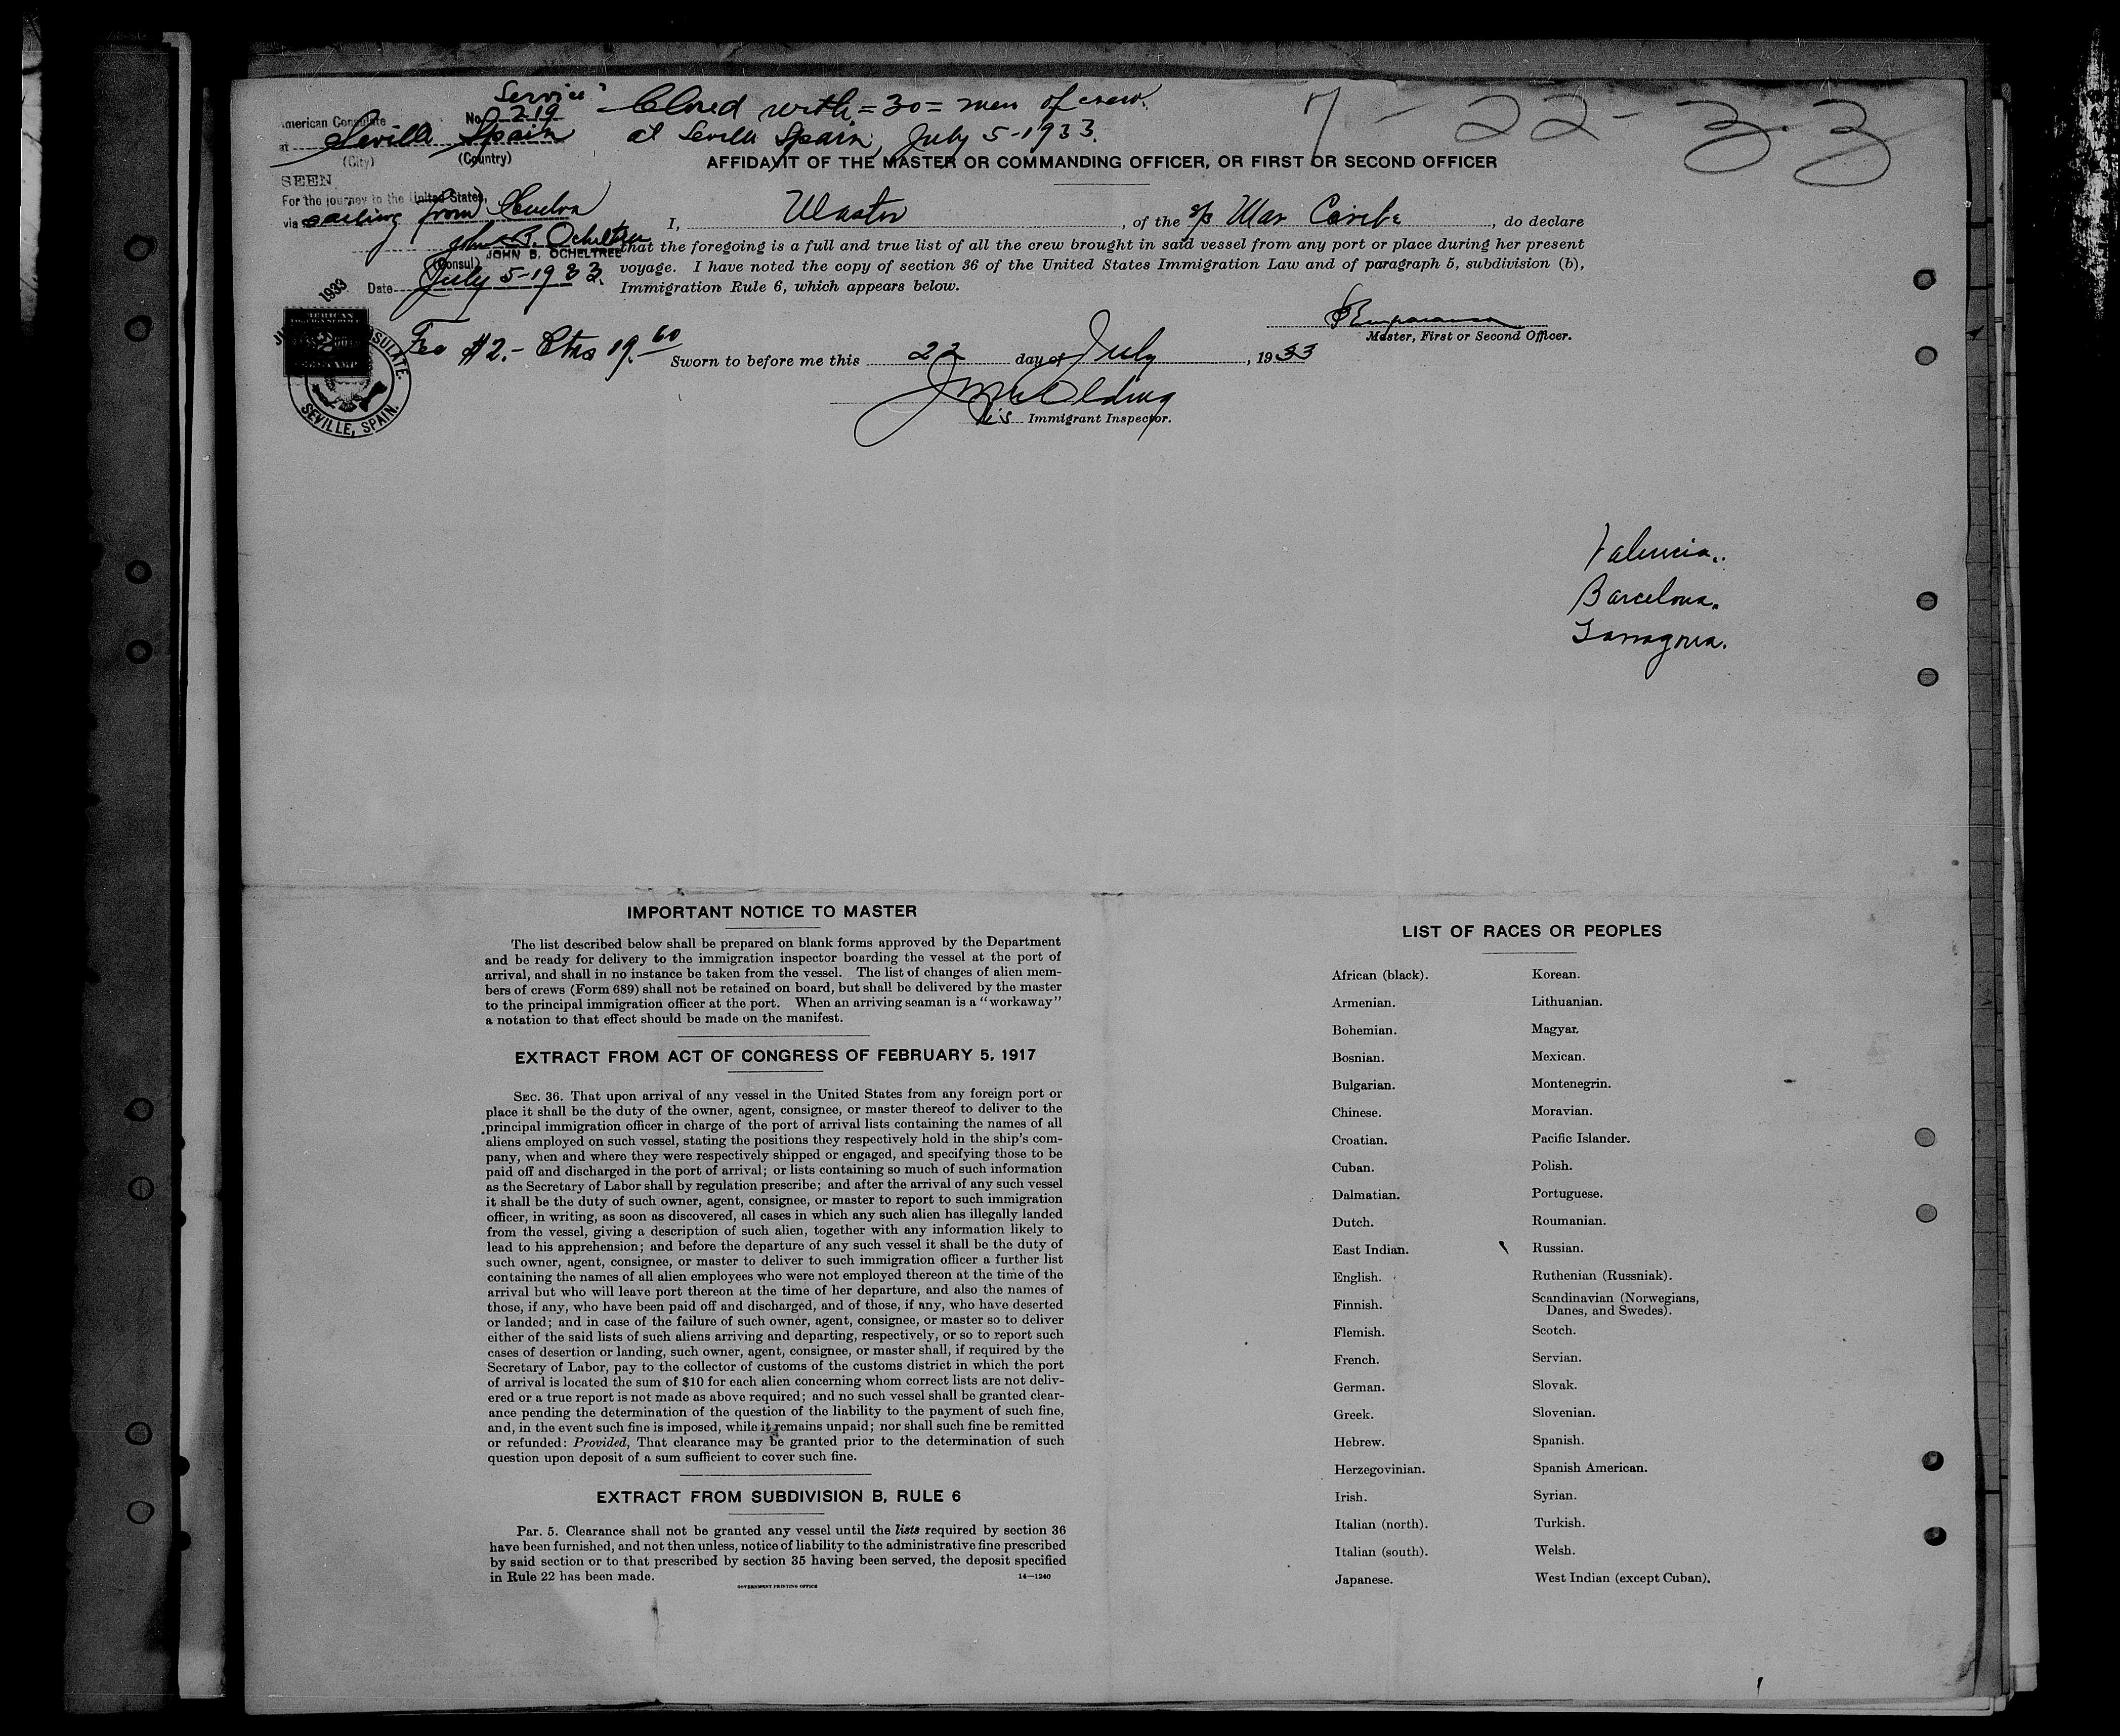 Service
American Consulate No. 219
at Sevilla Spain
(City) (Country)
SEEN
For the journey to the United States,
via sailing from Huelva
John B. Ocheltree
JOHN B. OCHELTREE
(Consul)
Date July 5-1933.
1933
AMERICAN
SEVILLE, SPAIN.
Fee $2.- Ctas 19.60
Closed with =30= men of crew.
at Sevilla Spain, July 5-1933.
7-22-33
AFFIDAVIT OF THE MASTER OR COMMANDING OFFICER, OR FIRST OR SECOND OFFICER
I, Master, of the s/s Mar Caribe, do declare
that the foregoing is a full and true list of all the crew brought in said vessel from any port or place during her present
voyage. I have noted the copy of section 36 of the United States Immigration Law and of paragraph 5, subdivision (b),
Immigration Rule 6, which appears below.
Master, First or Second Officer.
Sworn to before me this 22 day of July, 1933
Immigrant Inspector.
Valencia.
Barcelona.
Tarragona.
IMPORTANT NOTICE TO MASTER
The list described below shall be prepared on blank forms approved by the Department
and be ready for delivery to the immigration inspector boarding the vessel at the port of
arrival, and shall in no instance be taken from the vessel. The list of changes of alien mem-
bers of crews (Form 689) shall not be retained on board, but shall be delivered by the master
to the principal immigration officer at the port. When an arriving seaman is a "workaway"
a notation to that effect should be made on the manifest.
EXTRACT FROM ACT OF CONGRESS OF FEBRUARY 5, 1917
SEC. 36. That upon arrival of any vessel in the United States from any foreign port or
place it shall be the duty of the owner, agent, consignee, or master thereof to deliver to the
principal immigration officer in charge of the port of arrival lists containing the names of all
aliens employed on such vessel, stating the positions they respectively hold in the ship's com-
pany, when and where they were respectively shipped or engaged, and specifying those to be
paid off and discharged in the port of arrival; or lists containing so much of such information
as the Secretary of Labor shall by regulation prescribe; and after the arrival of any such vessel
it shall be the duty of such owner, agent, consignee, or master to report to such immigration
officer, in writing, as soon as discovered, all cases in which any such alien has illegally landed
from the vessel, giving a description of such alien, together with any information likely to
lead to his apprehension; and before the departure of any such vessel it shall be the duty of
such owner, agent, consignee, or master to deliver to such immigration officer a further list
containing the names of all alien employees who were not employed thereon at the time of the
arrival but who will leave port thereon at the time of her departure, and also the names of
those, if any, who have been paid off and discharged, and of those, if any, who have deserted
or landed; and in case of the failure of such owner, agent, consignee, or master so to deliver
either of the said lists of such aliens arriving and departing, respectively, or so to report such
cases of desertion or landing, such owner, agent, consignee, or master shall, if required by the
Secretary of Labor, pay to the collector of customs of the customs district in which the port
of arrival is located the sum of $10 for each alien concerning whom correct lists are not deliv-
ered or a true report is not made as above required; and no such vessel shall be granted clear-
ance pending the determination of the question of the liability to the payment of such fine,
and, in the event such fine is imposed, while it remains unpaid; nor shall such fine be remitted
or refunded: Provided, That clearance may be granted prior to the determination of such
question upon deposit of a sum sufficient to cover such fine.
EXTRACT FROM SUBDIVISION B, RULE 6
Par. 5. Clearance shall not be granted any vessel until the lists required by section 36
have been furnished, and not then unless, notice of liability to the administrative fine prescribed
by said section or to that prescribed by section 35 having been served, the deposit specified
in Rule 22 has been made. 14—1240
GOVERNMENT PRINTING OFFICE
LIST OF RACES OR PEOPLES
African (black). Korean.
Armenian. Lithuanian.
Bohemian. Magyar.
Bosnian. Mexican.
Bulgarian. Montenegrin.
Chinese. Moravian.
Croatian. Pacific Islander.
Cuban. Polish.
Dalmatian. Portuguese.
Dutch. Roumanian.
East Indian. Russian.
English. Ruthenian (Russniak).
Finnish. Scandinavian (Norwegians,
Danes, and Swedes).
Flemish. Scotch.
French. Servian.
German. Slovak.
Greek. Slovenian.
Hebrew. Spanish.
Herzegovinian. Spanish American.
Irish. Syrian.
Italian (north). Turkish.
Italian (south). Welsh.
Japanese. West Indian (except Cuban).